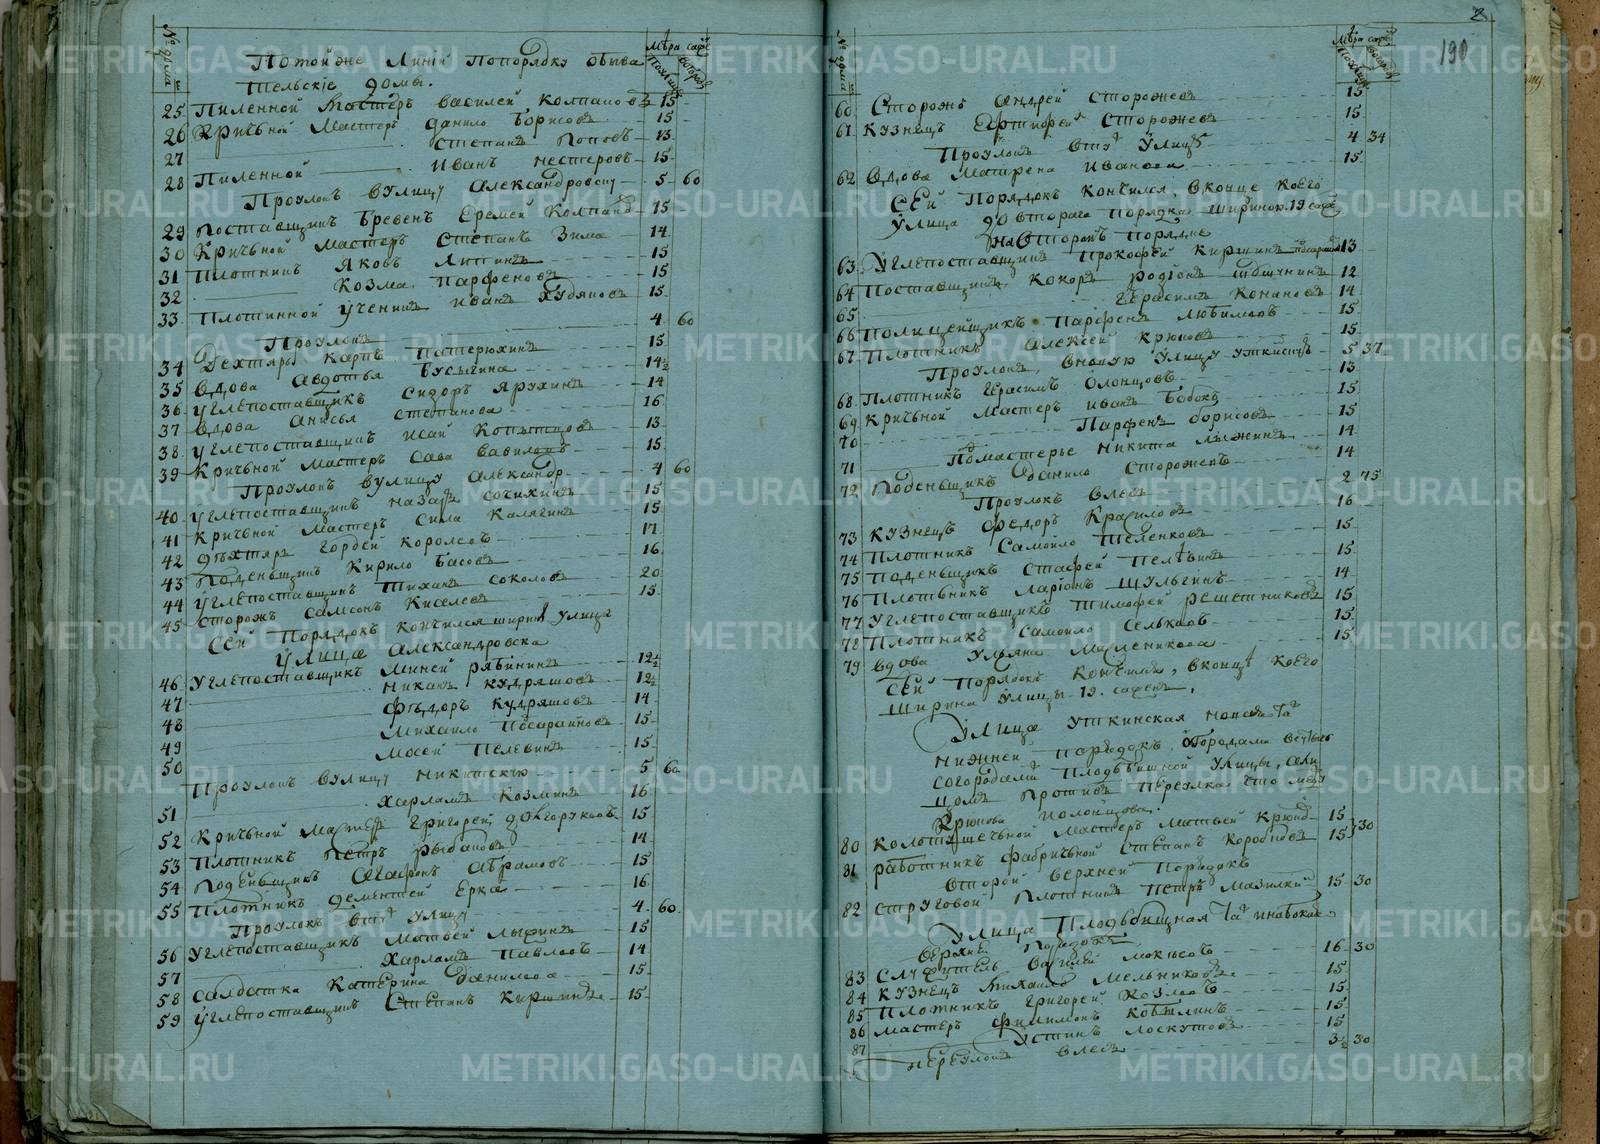 № дома
мѣра саже
По той же Линіи По порядку обыва
тельскіе домы.
25 Пиленной мастеръ василей Колпаковъ 15
26 Кричьной Мастеръ данило Борисовъ 15
27 степанъ Поповъ 13
28 Пиленной Иванъ нестеровъ 15
Проулокъ вулицу Александровску 5 60
29 Поставщикъ Бревенъ Еремей Колпаков 15
30 Кричьной мастеръ степанъ Зима 14
31 Плотникъ Яковъ 15
32 Козма Парфеновъ 15
33 Плотинной ученикъ иванъ Худяковъ 15
Проулокъ 4 60
34 Дехтярь Карпъ Патерюхинъ 15
35 вдова авдотья Бусыгина 14½
36 углепоставщикъ сидоръ Ярухинъ 14
37 вдова анисья степанова 16
38 углепоставщикъ исай Копытовъ 13
39 Кричьной мастеръ Сава вавиловъ 15
Проулокъ вулицу Александр 4 60
40 углепоставщикъ назаръ сочихинъ 15
41 Кричьной мастеръ сила Калягинъ 15
42 дѣхтярь гордей королевъ 17
43 Поденьщикъ Кирило Басовъ 16
44 углепоставщикъ тиханъ соколовъ 20
45 сторожъ самсонъ Киселевъ 15
Сей Порядокъ кончился ширин улица
улица александровска
46 Углепоставщикъ миней рябининъ 12½
47 никанъ кудряшовъ 12½
48 Фѣдоръ кудряшовъ 14
49 михаило Посарайновъ 15
50 мосей Пелевинъ 15
Проулокъ вулицу никитскую 5 60
51 Харламъ Козминъ 16
52 Кричьной мастеръ григорей долгоруковъ 15
53 Плотникъ Петръ рыбаковъ 14
54 Поденьщикъ агафонъ абрамовъ 15
55 Плотникъ дементей Ерка 16
Проулокъ вту улицу 4 60
56 Углепоставщикъ матвей лыжинъ 15
57 харламъ Павловъ 14
58 салдатка Катерина данилова 15
59 углепоставщикъ степанъ Киршинъ 15
190
№ дома
мѣра саже
60 Сторожъ андрей сторожевъ 15
61 кузнецъ Ертифей сторожевъ 15
Проулокъ вту улицу 4 34
62 вдова матрена иванова 15
Сей Порядокъ кончился, вконце коего
улица до втораго порядка шириною 19 саже
На второмъ порядке
63 Углепоставщикъ прокофей киршинъ 13
64 Поставщикъ Кокоръ родіонъ 12
65 герасимъ Конановъ 14
66 Полицейщикъ Парфенъ любимовъ 15
67 Плотникъ алексей крюковъ 15
Проулокъ внывую улицу уткинскую 5 37
68 Плотникъ герасимъ олонцовъ 13
69 Кричьной мастеръ иванъ Бобокъ 15
70 Парфенъ борисовъ 15
71 Помастерье никита лыжинъ 14
72 Поденьщикъ данило сторожевъ 14
Проулокъ влесъ 2 75
73 кузнецъ федоръ Красиловъ 16
74 плотникъ Самойло Теленковъ 15
75 поденьщикъ стафей Пелѣвинъ 15
76 Плотникъ ларіонъ Шульгинъ 14
77 углепоставщикъ тимофей решетниковъ 15
78 Плотникъ самойло сельковъ 15
79 вдова ульяна масленикова 15
Сей Порядокъ кончился, вконцѣ коего
ширина улицы 19 сажень.
Улица уткинская
нижней порядокъ
согородами Плодьбищной улицы,
противъ переулка что межу
Крюкова Полонцова.
80 колотушечьной мастеръ матвей Крюков 15 30
81 работникъ фабричьной степанъ коробковъ 15
второй верхней Порядокъ
82 струговой плотникъ петръ мазилкинъ 15 30
Улица Плодьбищная
верхней Порядокъ
83 служитель василей мокѣевъ 16 30
84 кузнецъ михаило мельниковъ 15
85 плотникъ григорей козловъ 15
86 мастеръ филимонъ ковтлинъ 15
87 устинъ лоскутовъ 15
переулокъ влесъ 3½ 30